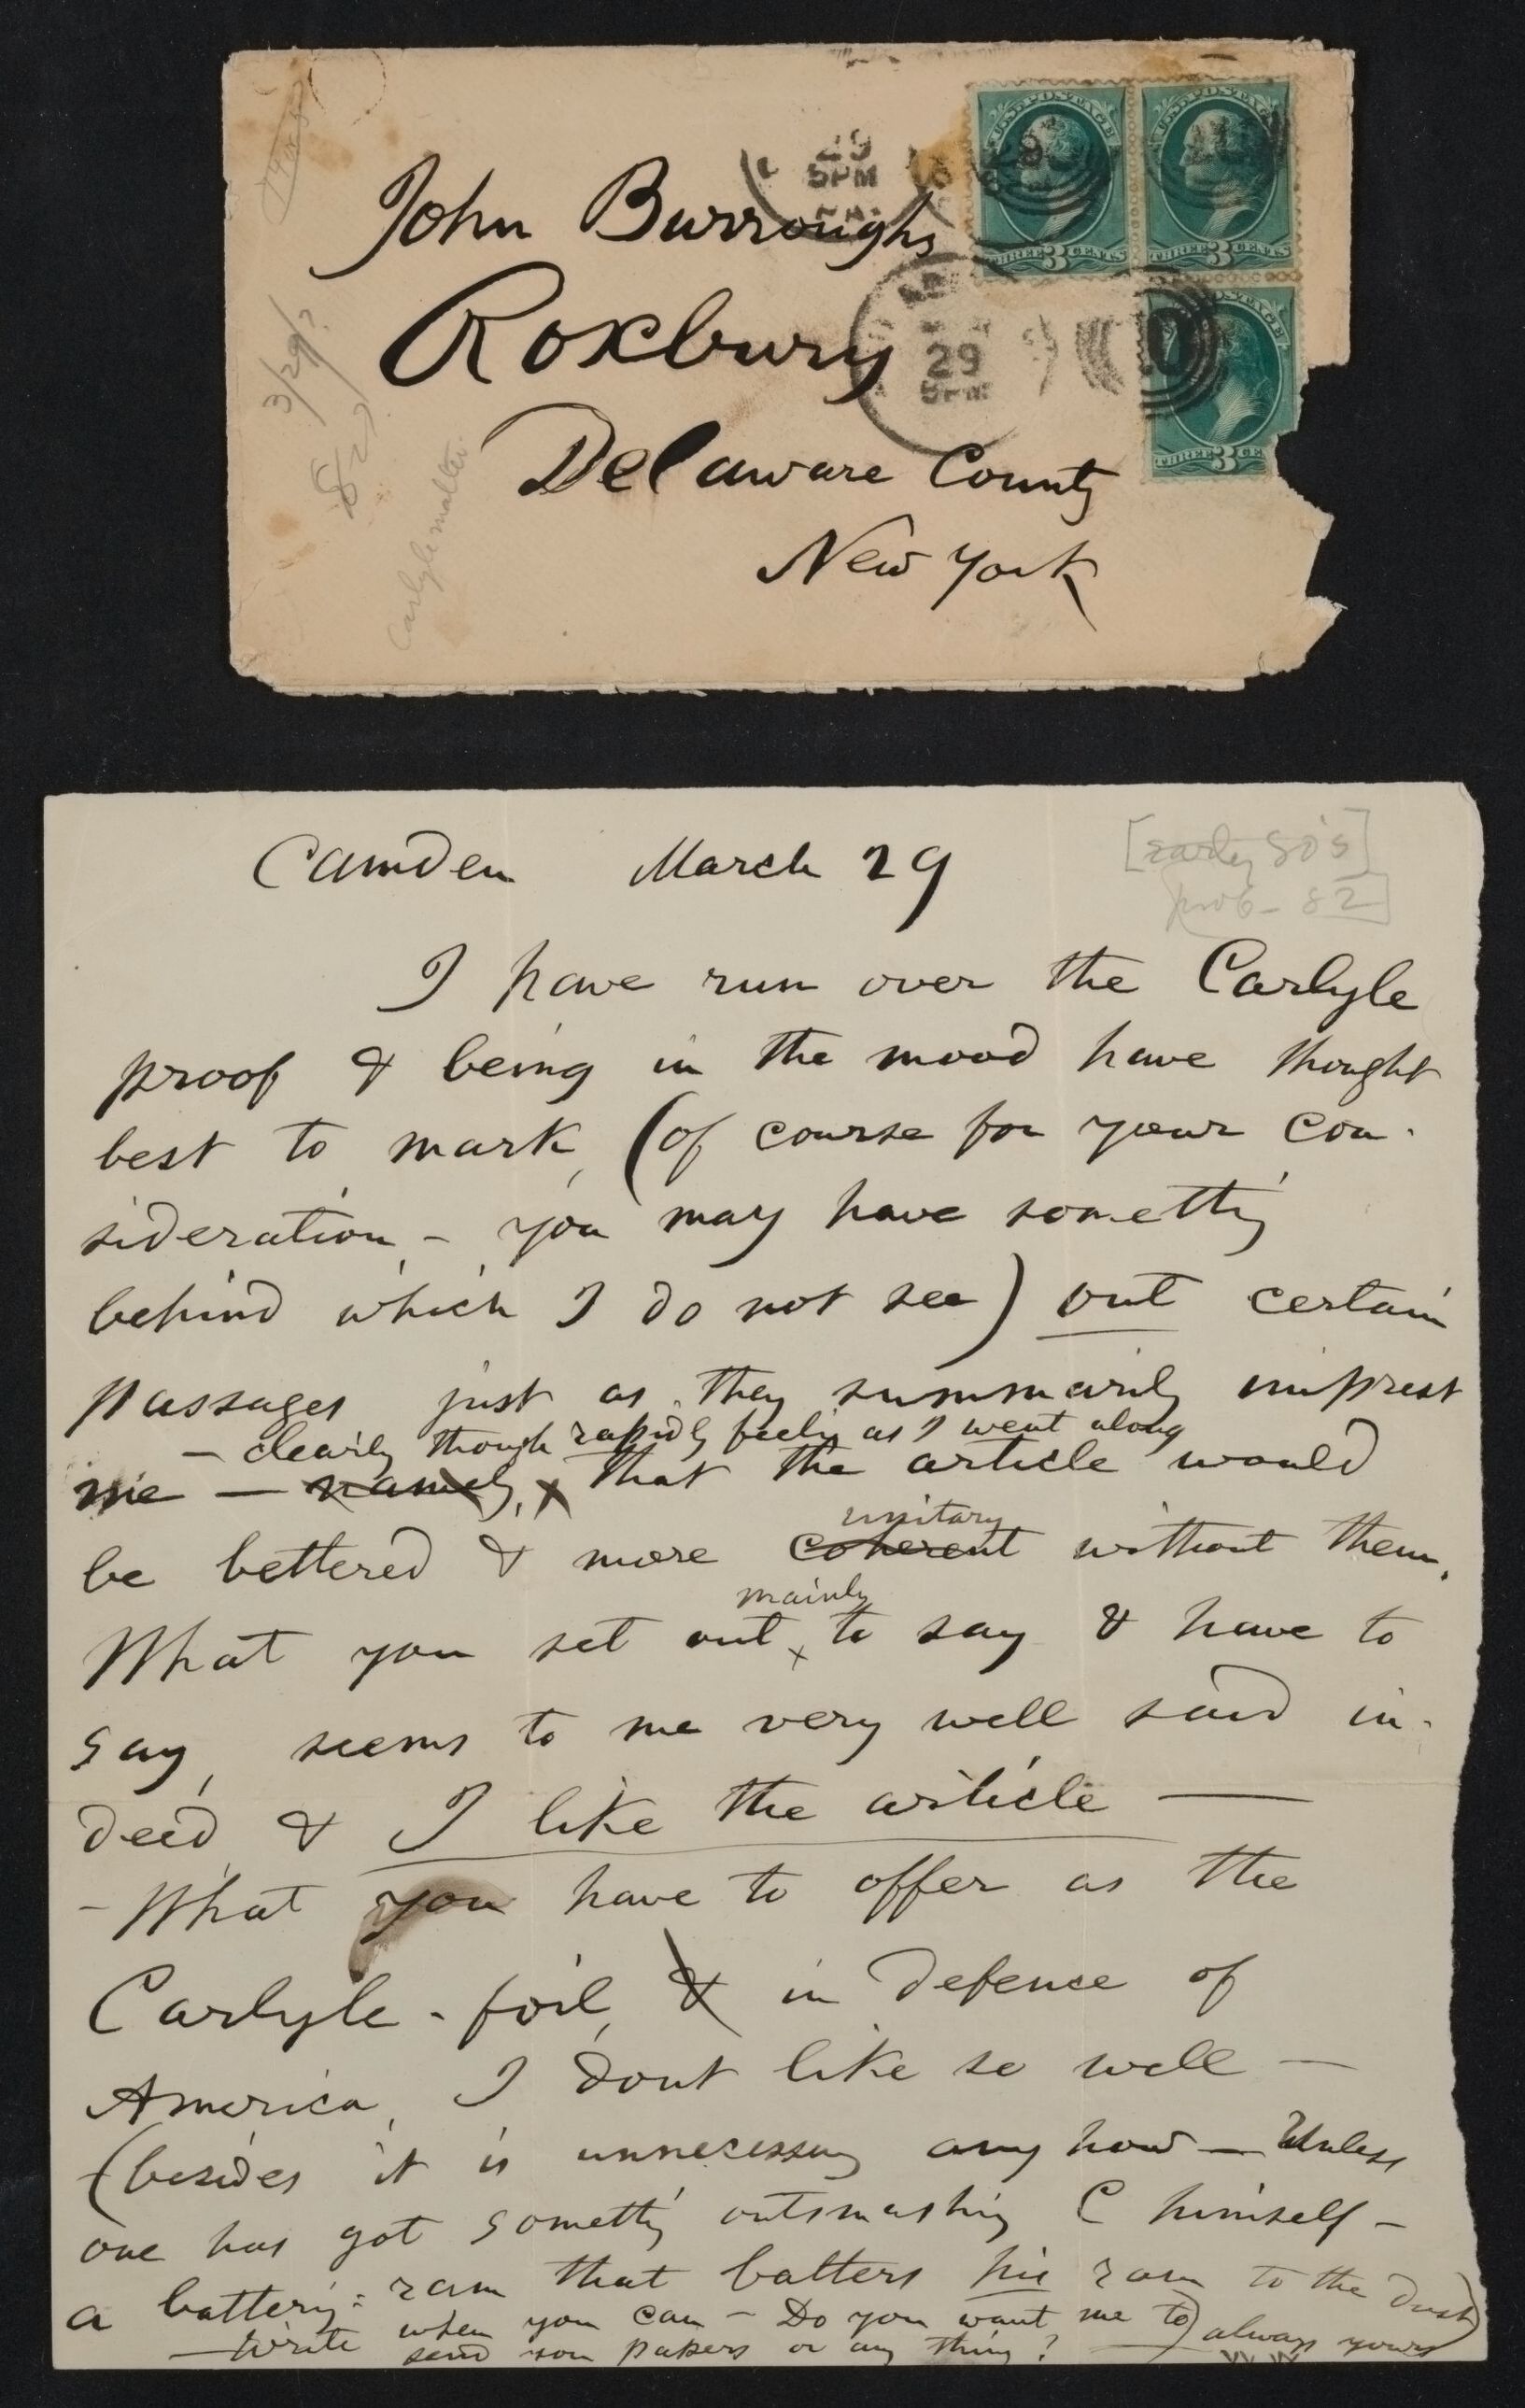 John Burroughs
Roxbury
Delaware County
New York
29
5PM
29
5PM
U.S. POSTAGE
THREE 3 CENTS
U.S. POSTAGE
THREE 3 CENTS
THREE 3 CE
3/29/
Carlyle matter
Camden March 29
[early 80's]
prob - 82]
I have run over the Carlyle
proof & being in the mood have thought
best to mark, (of course for your con-
sideration, - you may have somethig
behind which I do not see) out certain
passages just as they summarily imprest
- clearly though rapidly feelig as I went along
me — namely, x that the article would
unitary
be bettered & more coherent without them.
mainly
What you set out x to say & have to
say, seems to me very well said in-
deed & I like the article —
- What you have to offer as the
Carlyle-foil, & in defence of
America, I dont like so well —
(besides it is unnecessary any how — Unless
one has got somethg outsmashig C himself -
a batterig-ram that batters his ram to the dust)
— Write when you can - Do you want me to
send you papers or any thing? — always yours
WW